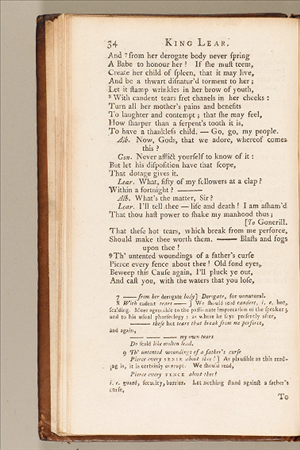 34 KING LEAR.
And ⁷ from her derogate body never spring
A Babe to honour her! If she must teem,
Create her child of spleen, that it may live,
And be a thwart disnatur'd torment to her;
Let it stamp wrinkles in her brow of youth,
⁸ With candent tears fret chanels in her cheeks:
Turn all her mother's pains and benefits
To laughter and contempt; that she may feel,
How sharper than a serpent's tooth it is,
To have a thankless child. — Go, go, my people.
Alb. Now, Gods, that we adore, whereof comes
this?
Gon. Never afflict yourself to know of it:
But let his disposition have that scope,
That dotage gives it.
Lear. What, fifty of my followers at a clap?
Within a fortnight? ———
Alb. What's the matter, Sir?
Lear. I'll tell thee — life and death! I am asham'd
That thou hast power to shake my manhood thus;
[To Gonerill.
That these hot tears, which break from me perforce,
Should make thee worth them. —— Blasts and fogs
upon thee!
⁹ Th' untented woundings of a father's curse
Pierce every sense about thee! Old fond eyes,
Beweep this Cause again, I'll pluck ye out,
And cast you, with the waters that you lose,
7 — from her derogate body] Derogate, for unnatural.
8 With cadent tears ——] We should read candent, i. e. hot,
scalding. More agreeable to the passionate imprecation of the speaker;
and to his usual phraseology: as where he says presently after,
—— these hot tears that break from me perforce,
and again,
—— my own tears
Do scald like molten lead.
9 Th' untented woundings of a father's curse
Pierce every SENSE about thee!] As plausible as this read-
ing is, it is certainly corrupt. We should read,
Pierce every FENCE about thee!
i. e. guard, security, barrier. Let nothing stand against a father's
curse,
To